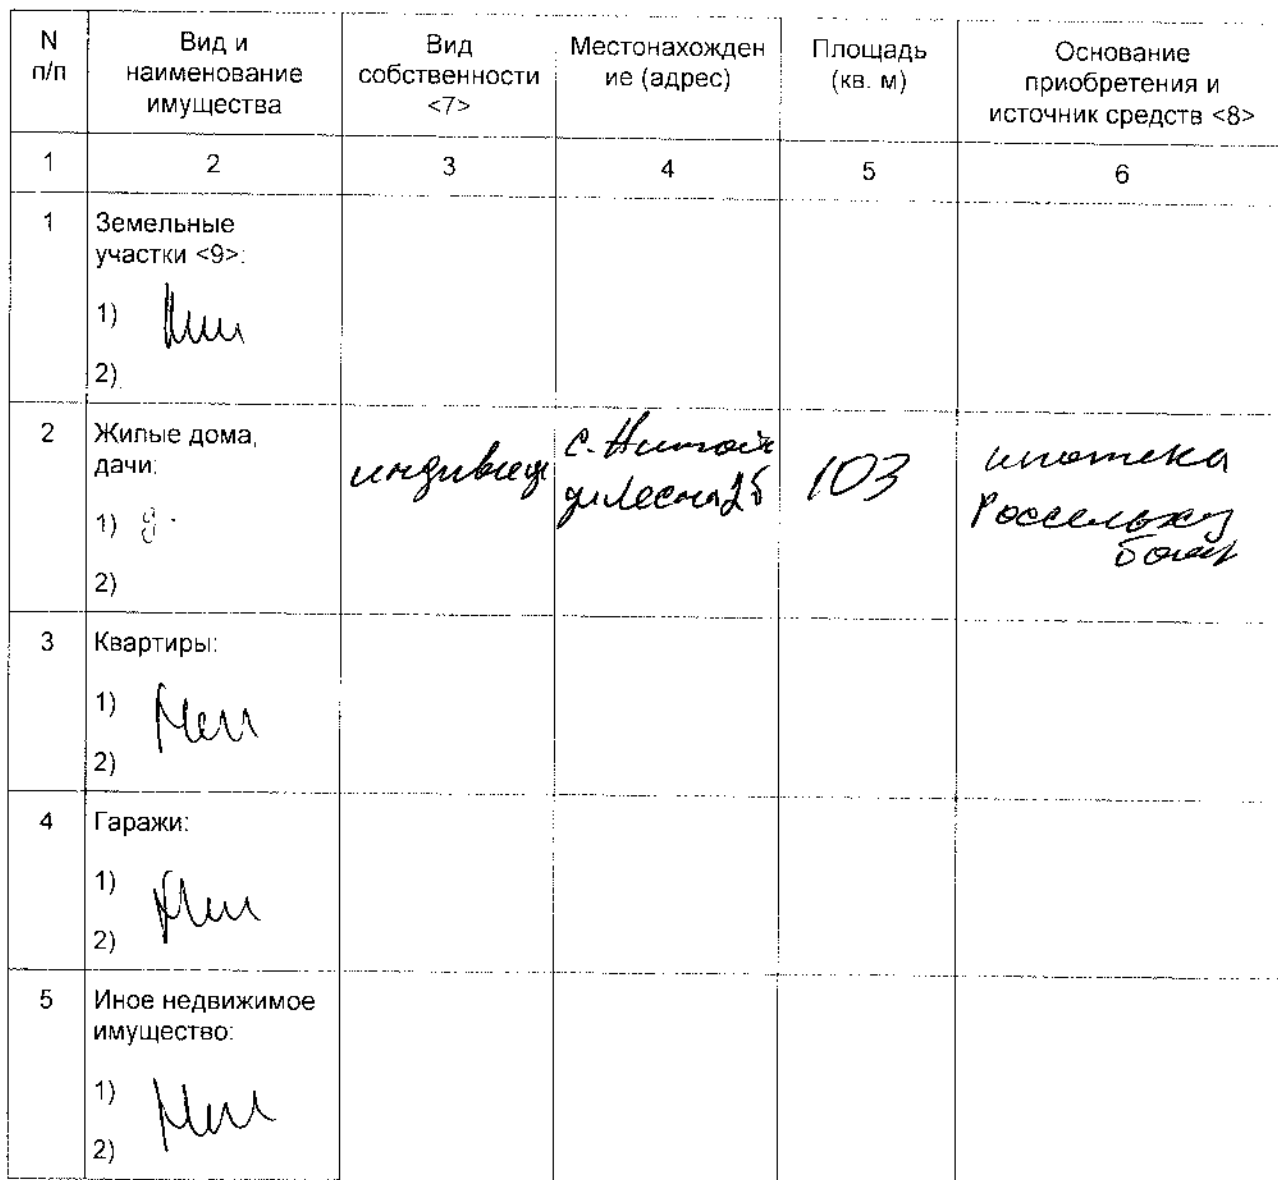 N п/п
Вид и наименование имущества
Вид собственности <7>
Местонахожден ие (адрес)
Площадь (кв. м)
Основание приобретения и источник средств <8>
1
2
3
4
5
6
1
Земельные
участки <9>:
1)
2)
2
Жилые дома,
дачи:
1)
2)
индивид
с.
ул Лесная 2б
103
ипотека
Россельхоз
банк
3
Квартиры:
1) Нет
2)
4
Гаражи:
1) Нет
2)
5
Иное недвижимое
имущество:
1) Нет
2)